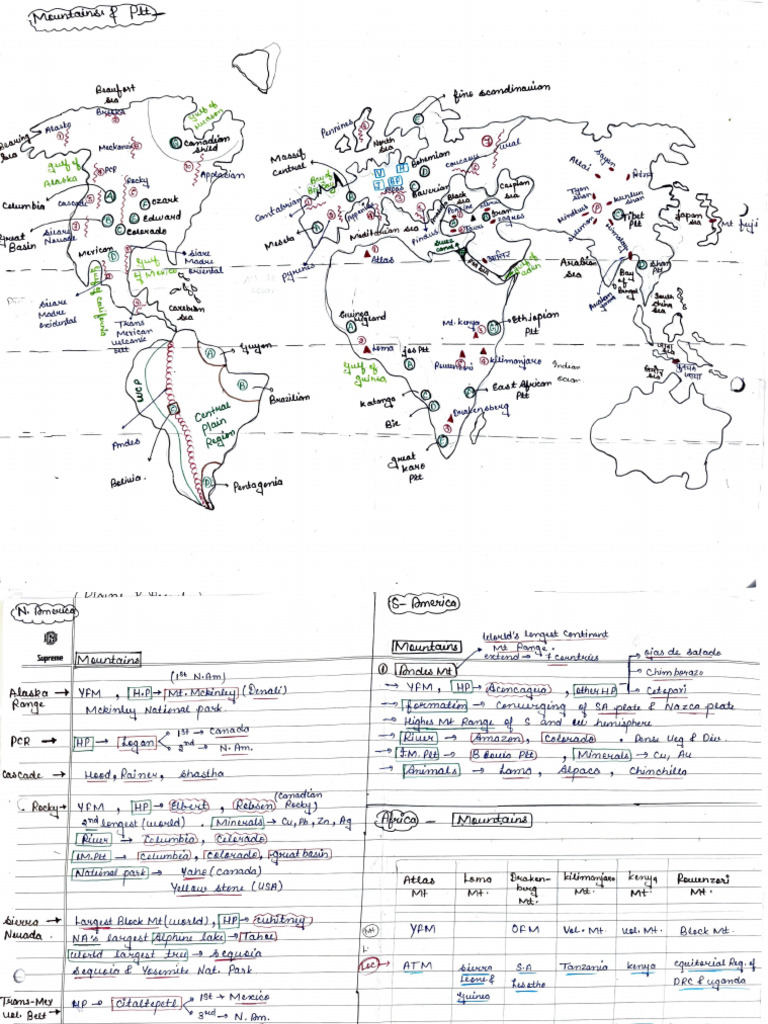 Mountains & Plt
Beaufort
sea
Brooks
Gulf of
Hudson
Bearing
sea
Alaska
Mackenzie
Canadian
shild
gulf of
Alaska
PCP
Rocky
Applacian
Columbia
Cascade
Ozark
Edward
Colorado
Great
Basin
Siearre
Nevada
Mexican
Siare
Madre
oriental
Gulf
of Mexico
gulf of california
Siare
Madre
oxidental
Trans
Mexican
volcanic
belt
Carebian
sea
Guyan
WCP
Brazilian
Central
Plain
Region
Andes
Bolivia
Pentagonia
fino scandinavian
Pennines
North
sea
Massif
Central
Bay of
Bohemian
Bavarian
Caucasus
Ural
Cantabrian
Meseta
Pyrenees
Meditarian sea
Pindus
Black
sea
Caspian
sea
Iran
Zagros
Suez
canal
Red sea
gulf of
aden
Arabian
sea
Atlas
Altai
Sayan
Tian
shan
kunlun
shan
Hindukus
Suleman
Tibet
Plt
Himalaya
Japan
sea
Mt fuji
Arakan
yoma
Bay
of
Bengal
Shan
Plt
South
china
sea
Java
sea
Guinea
Highland
Loma
Jos
Plt
Gulf of
guinea
Mt. kenya
Ethiopian
Plt
Rwenzori
kilimanjaro
Indian
ocean
Katanga
Bie
East African
Plt
Drakensberg
great
karo
Plt
N. America
Supreme
Mountains
(1st N.Am)
Alaska
Range → YFM, H.P → Mt. Mckinley (Denali)
Mckinley National park.
PCR → HP → Logan → 1st → Canada
2nd → N. Am.
Cascade → Hood, Rainer, shastha
Rocky → YFM, HP → Elbert, Robson (Canadian Rocky)
2nd longest (world) . Minerals → Cu, Pb, Zn, Ag
River → Columbia, Colorado
IM.Plt → Columbia, Colorado, great basin
National park → Yoho (Canada)
Yellow stone (USA)
Sierra
Nevada → Largest Block Mt (world), HP → Whitney
NA's largest Alphine lake → Tahoe
World largest tree → sequoia
Sequoia & Yosemite Nat. Park
Trans-Mex
Vol. Belt → HP → Citaltepetl → 1st → Mexico
3rd → N. Am.
S- America
Mountains
World's longest continant
Mt Range.
extend → 7 countries
① Andes Mt
→ YFM, HP → Aconcagua, other HP
ojas de salado
Chimborazo
Cotopaxi
→ formation → Converging of SA plate & Nazca plate
→ Highes Mt Range of S and w hemisphere
→ River → Amazon, Colorado . Dense Veg & Div.
→ IM. Plt → Bolivia Plt, Minerals → Cu, Au
→ Animals → Lama, Alpaca, Chinchilla
Africa – Mountains
Atlas Mt
Loma Mt.
Draken-
burg
Mt.
kilimanjaro
Mt.
kenya
Mt.
Rowenzori
Mt.
Mt YFM OFM Vol. Mt. Vol. Mt. Block Mt.
Loc → ATM
Sierra
Leone &
Guinea
S.A
Lesotho
Tanzania
kenya
equitorial Reg. of
DRC & uganda